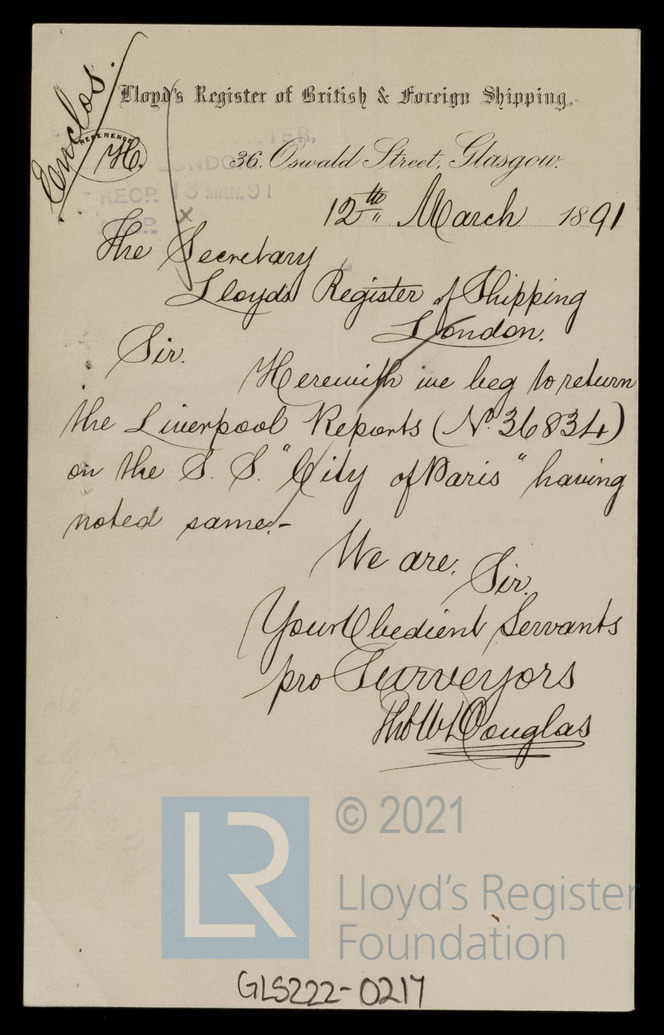 Enclos.
Lloyd's Register of British & Foreign Shipping,
REFERENCE
H.
36. Oswald Street, Glasgow.
LONDON
RECP. 13 MAR. 91
12th March 1891
The Secretary
Lloyds Register of Shipping
London.
Sir.
Herewith we beg to return
the Liverpool Reports (No. 36834)
on the S. S. "City of Paris" having
noted same.-
We are, Sir,
Your Obedient Servants
pro Surveyors
Douglas
LR
© 2021
Lloyd's Register
Foundation
GLS222-0217